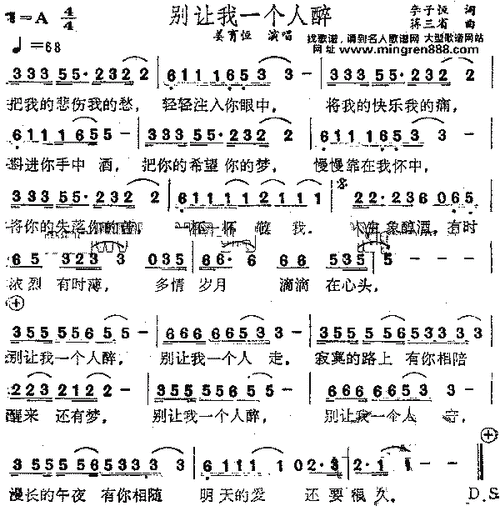 别让我一个人醉
1=A 4/4
李子恒 词
蒋三省 曲
♩=68
姜育恒 演唱
找歌谱，请到名人歌谱网 大型歌谱网站
网址 www.mingren888.com
3 3 3 5 5· 2 3 2 2 | 6 1 1 1 6 5 3 3 – | 3 3 3 5 5· 2 3 2 2 |
把我的悲伤我的愁， 轻轻注入你眼中， 将我的快乐我的痛，
6 1 1 1 1 6 5 5 – | 3 3 3 5 5· 2 3 2 2 | 6 1 1 1 6 5 3 3 – |
斟进你手中 酒， 把你的希望你的梦， 慢慢靠在我怀中，
3 3 3 5 5· 2 3 2 2 | 6 1 1 1 1 2 1 1 1 – | 2 2· 2 3 2 0 6 5 |
将你的失落你的 一杯一杯 我。 象醇酒，有时
6 5 3 2 3 3 0 3 5 | 6 6· 6 6 6 5 3 5 | 5 – – – |
浓烈 有时薄， 多情 岁月 滴滴 在心头，
3 5 5 5 5 6 5 5 – | 6 6 6 6 6 5 3 3 – | 3 5 5 5 5 6 5 3 3 3 |
别让我一个人醉， 别让我一个人 走， 寂寞的路上 有你相陪
2 2 2 3 2 1 2 2 – | 3 5 5 5 5 5 6 5 5 – | 6 6 6 6 6 5 3 3 – |
醒来 还有梦， 别让我一个人醉， 别让我一个人 守，
3 5 5 5 5 6 5 3 3 3 | 6 1 1 1 1 0 2· 3 | 2· 1 1 – – | D.S
漫长的午夜 有你相随 明天的爱 还 要 很 久。